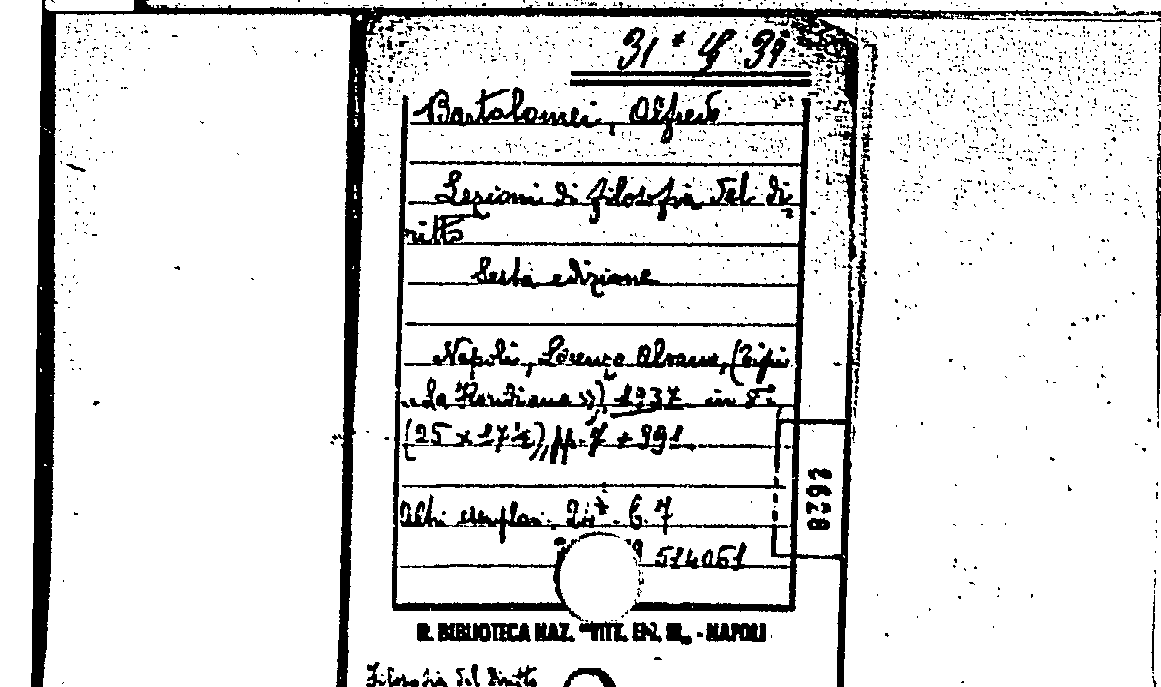 Bartolomei, Alfredo
Lezioni di filosofia del di
ritto
Sesta edizione
Napoli, Lorenzo Alvano, (Tipi
"La Floridiana") 1937 in 8°
(25 x 17½), pp. 7 + 391
Altri esemplari. B. 7
514051
R. BIBLIOTECA NAZ. "VITT. EM. III" - NAPOLI
Filosofia del Diritto